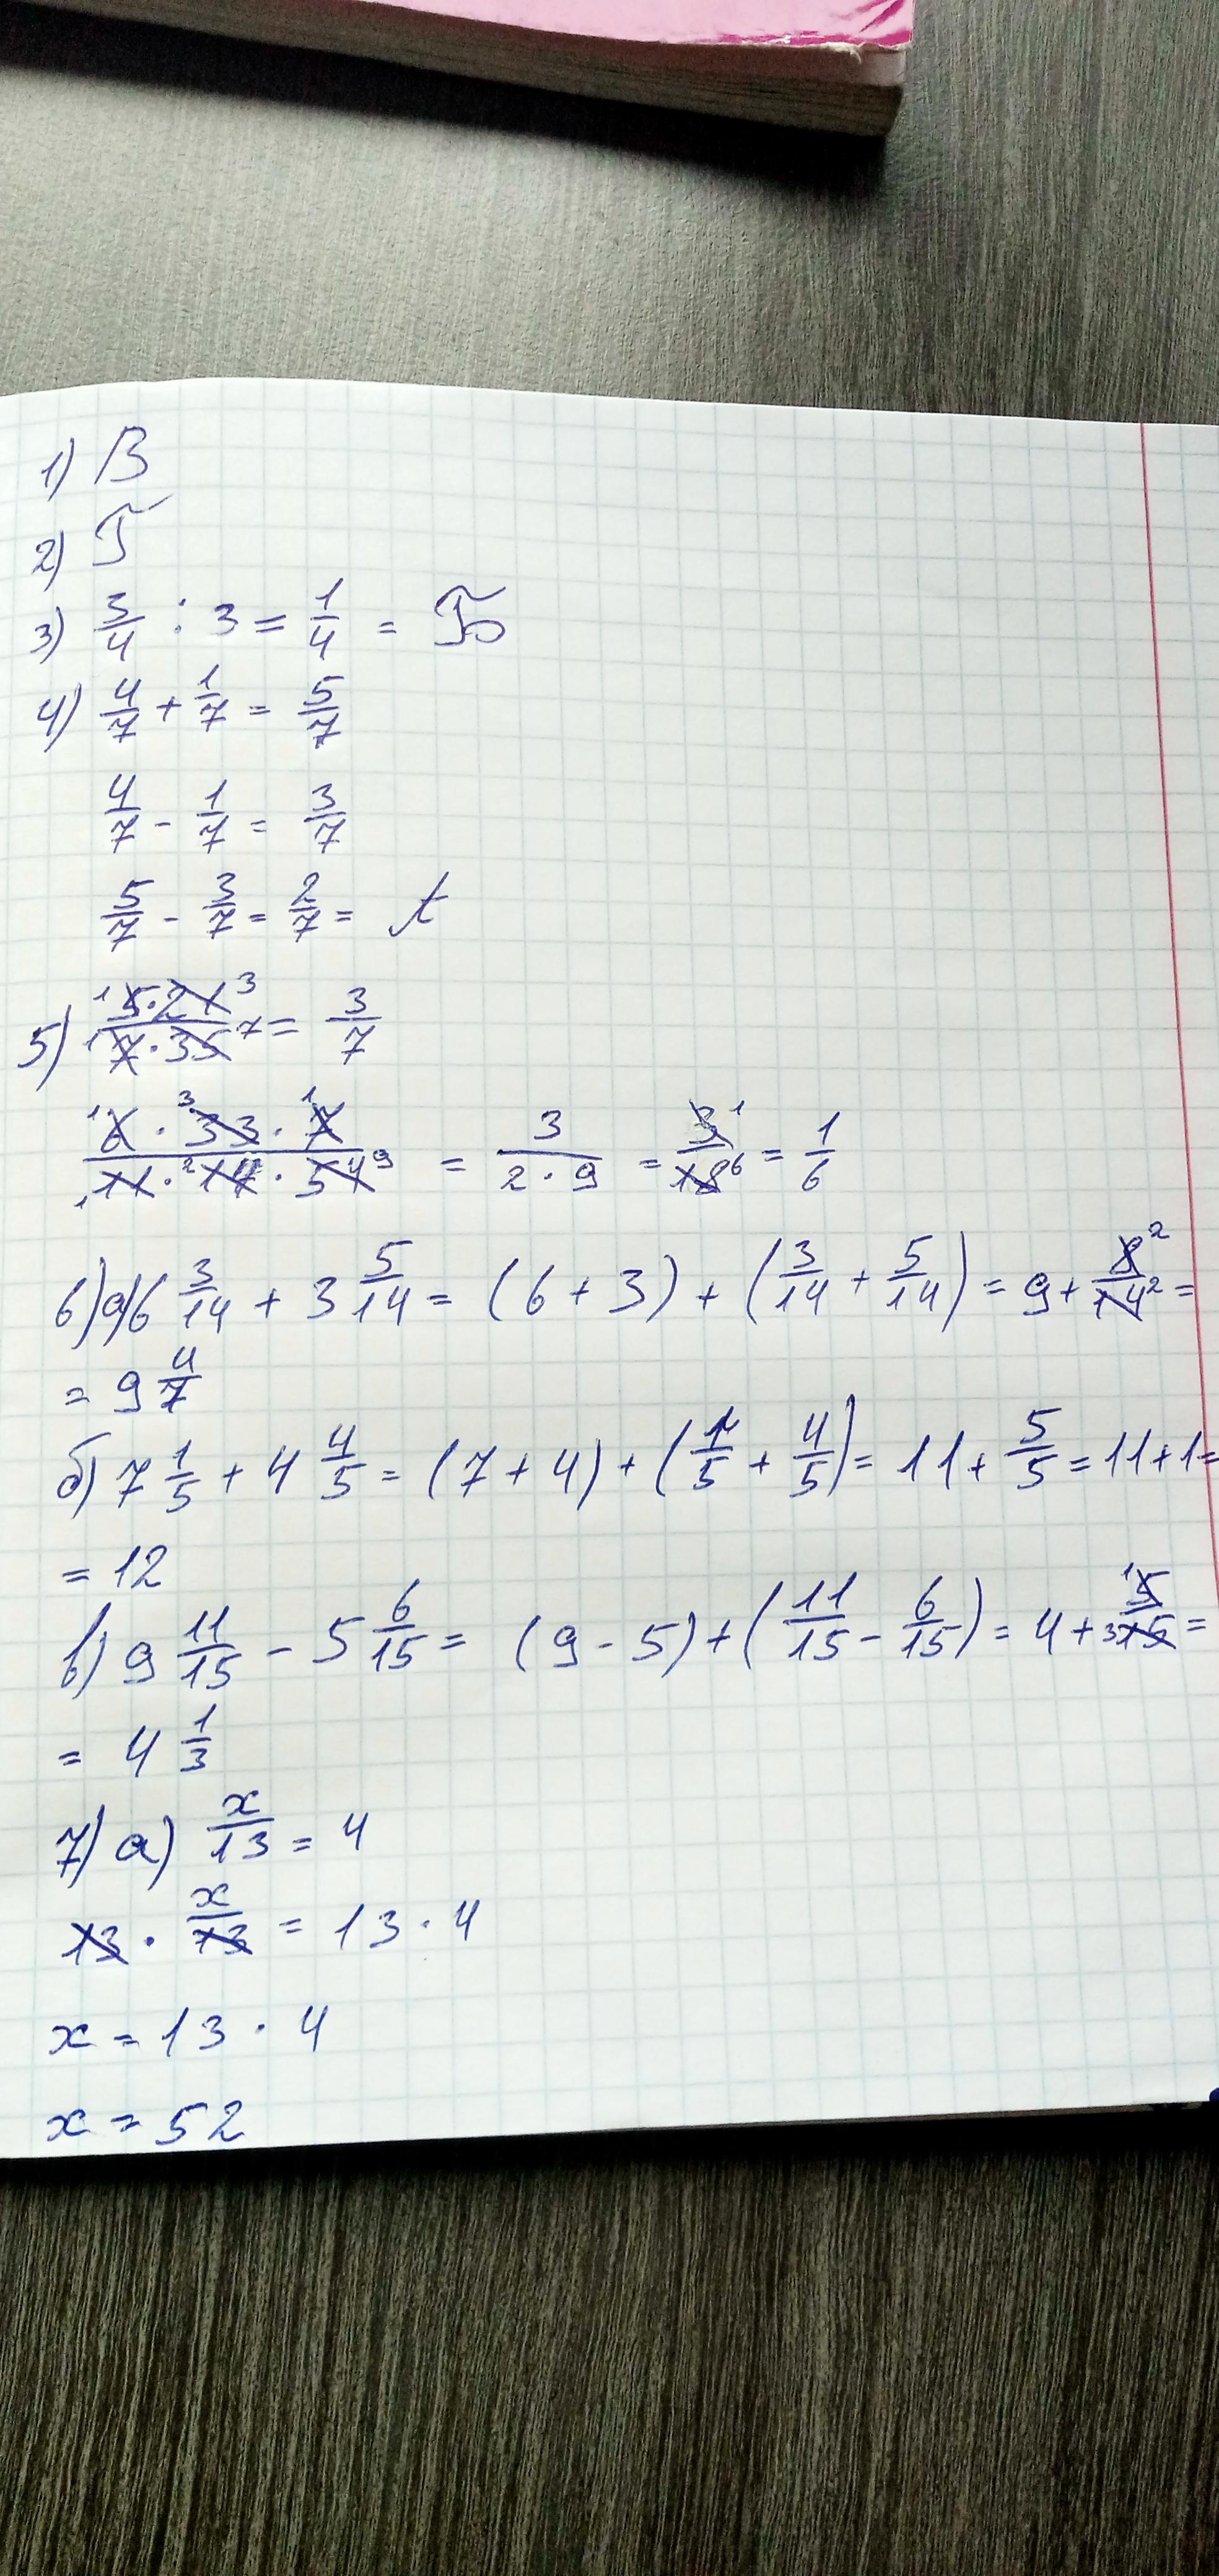 1) В
2) Г
3) 3/4 : 3 = 1/4 = Б
4) 4/7 + 1/7 = 5/7
4/7 - 1/7 = 3/7
5/7 - 3/7 = 2/7 = А
5) (¹5 · 21³)/(¹7 · 35⁷) = 3/7
(¹6 · ³33 · ¹7)/(₁11 · ²14 · 54⁹) = 3/(2 · 9) = 3¹/18⁶ = 1/6
6) а) 6 3/14 + 3 5/14 = (6 + 3) + (3/14 + 5/14) = 9 + 8²/14² =
= 9 4/7
б) 7 1/5 + 4 4/5 = (7 + 4) + (1/5 + 4/5) = 11 + 5/5 = 11 + 1 =
= 12
в) 9 11/15 - 5 6/15 = (9 - 5) + (11/15 - 6/15) = 4 + ¹5/³15 =
= 4 1/3
7) а) x/13 = 4
13 · x/13 = 13 · 4
x = 13 · 4
x = 52